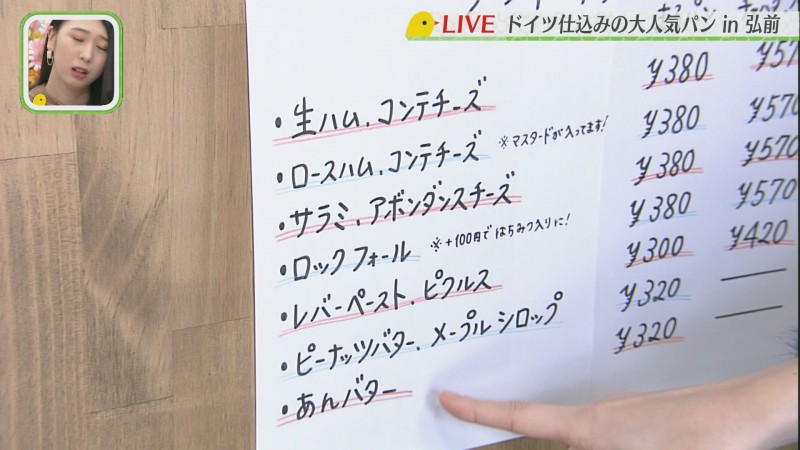 LIVE ドイツ仕込みの大人気パン in 弘前
・生ハム、コンテチーズ ¥380 ¥57
・ロースハム、コンテチーズ ※マスタードが入ってます! ¥380 ¥570
・サラミ、アボンダンスチーズ ¥380 ¥570
・ロックフォール ※+100円ではちみつ入りに! ¥380 ¥570
・レバーペースト、ピクルス ¥300 ¥420
・ピーナッツバター、メープルシロップ ¥320
・あんバター ¥320